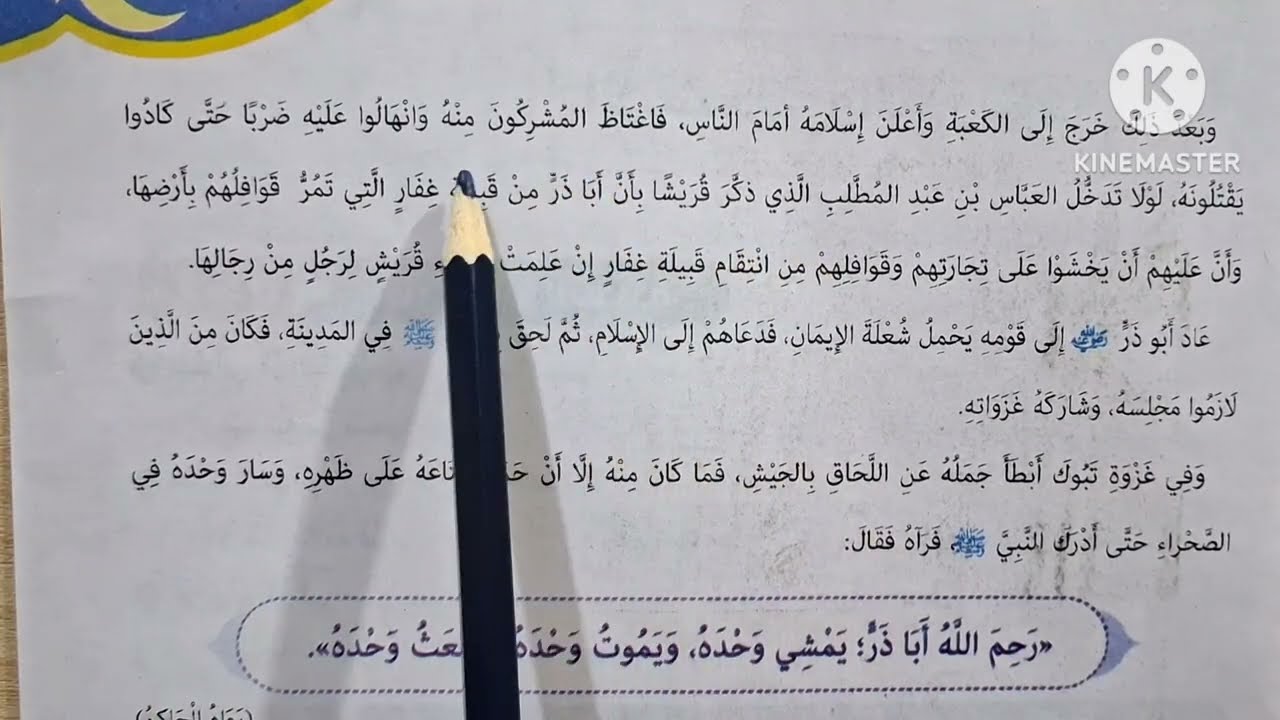 KINEMASTER
وَبَعْدَ ذَلِكَ خَرَجَ إِلَى الكَعْبَةِ وَأَعْلَنَ إِسْلَامَهُ أَمَامَ النَّاسِ، فَاغْتَاظَ المُشْرِكُونَ مِنْهُ وَانْهَالُوا عَلَيْهِ ضَرْبًا حَتَّى كَادُوا
يَقْتُلُونَهُ، لَوْلَا تَدَخُّلُ العَبَّاسِ بْنِ عَبْدِ المُطَّلِبِ الَّذِي ذكَّرَ قُرَيْشًا بِأَنَّ أَبَا ذَرٍّ مِنْ غِفَارٍ الَّتِي تَمُرُّ قَوَافِلُهُمْ بِأَرْضِهَا،
وَأَنَّ عَلَيْهِمْ أَنْ يَخْشَوْا عَلَى تِجَارَتِهِمْ وَقَوَافِلِهِمْ مِنِ انْتِقَامِ قَبِيلَةِ غِفَارٍ إِنْ عَلِمَتْ قُرَيْشٍ لِرَجُلٍ مِنْ رِجَالِهَا.
عَادَ أَبُو ذَرٍّ رضي الله عنه إِلَى قَوْمِهِ يَحْمِلُ شُعْلَةَ الإِيمَانِ، فَدَعَاهُمْ إِلَى الإِسْلَامِ، ثُمَّ لَحِقَ ﷺ فِي المَدِينَةِ، فَكَانَ مِنَ الَّذِينَ
لَازَمُوا مَجْلِسَهُ، وَشَارَكَهُ غَزَوَاتِهِ.
وَفِي غَزْوَةِ تَبُوكَ أَبْطَأَ جَمَلُهُ عَنِ اللَّحَاقِ بِالجَيْشِ، فَمَا كَانَ مِنْهُ إِلَّا أَنْ عَلَى ظَهْرِهِ، وَسَارَ وَحْدَهُ فِي
الصَّحْرَاءِ حَتَّى أَدْرَكَ النَّبِيَّ ﷺ، فَرَآهُ فَقَالَ:
«رَحِمَ اللَّهُ أَبَا ذَرٍّ؛ يَمْشِي وَحْدَهُ، وَيَمُوتُ وَحْدَهُ وَحْدَهُ».